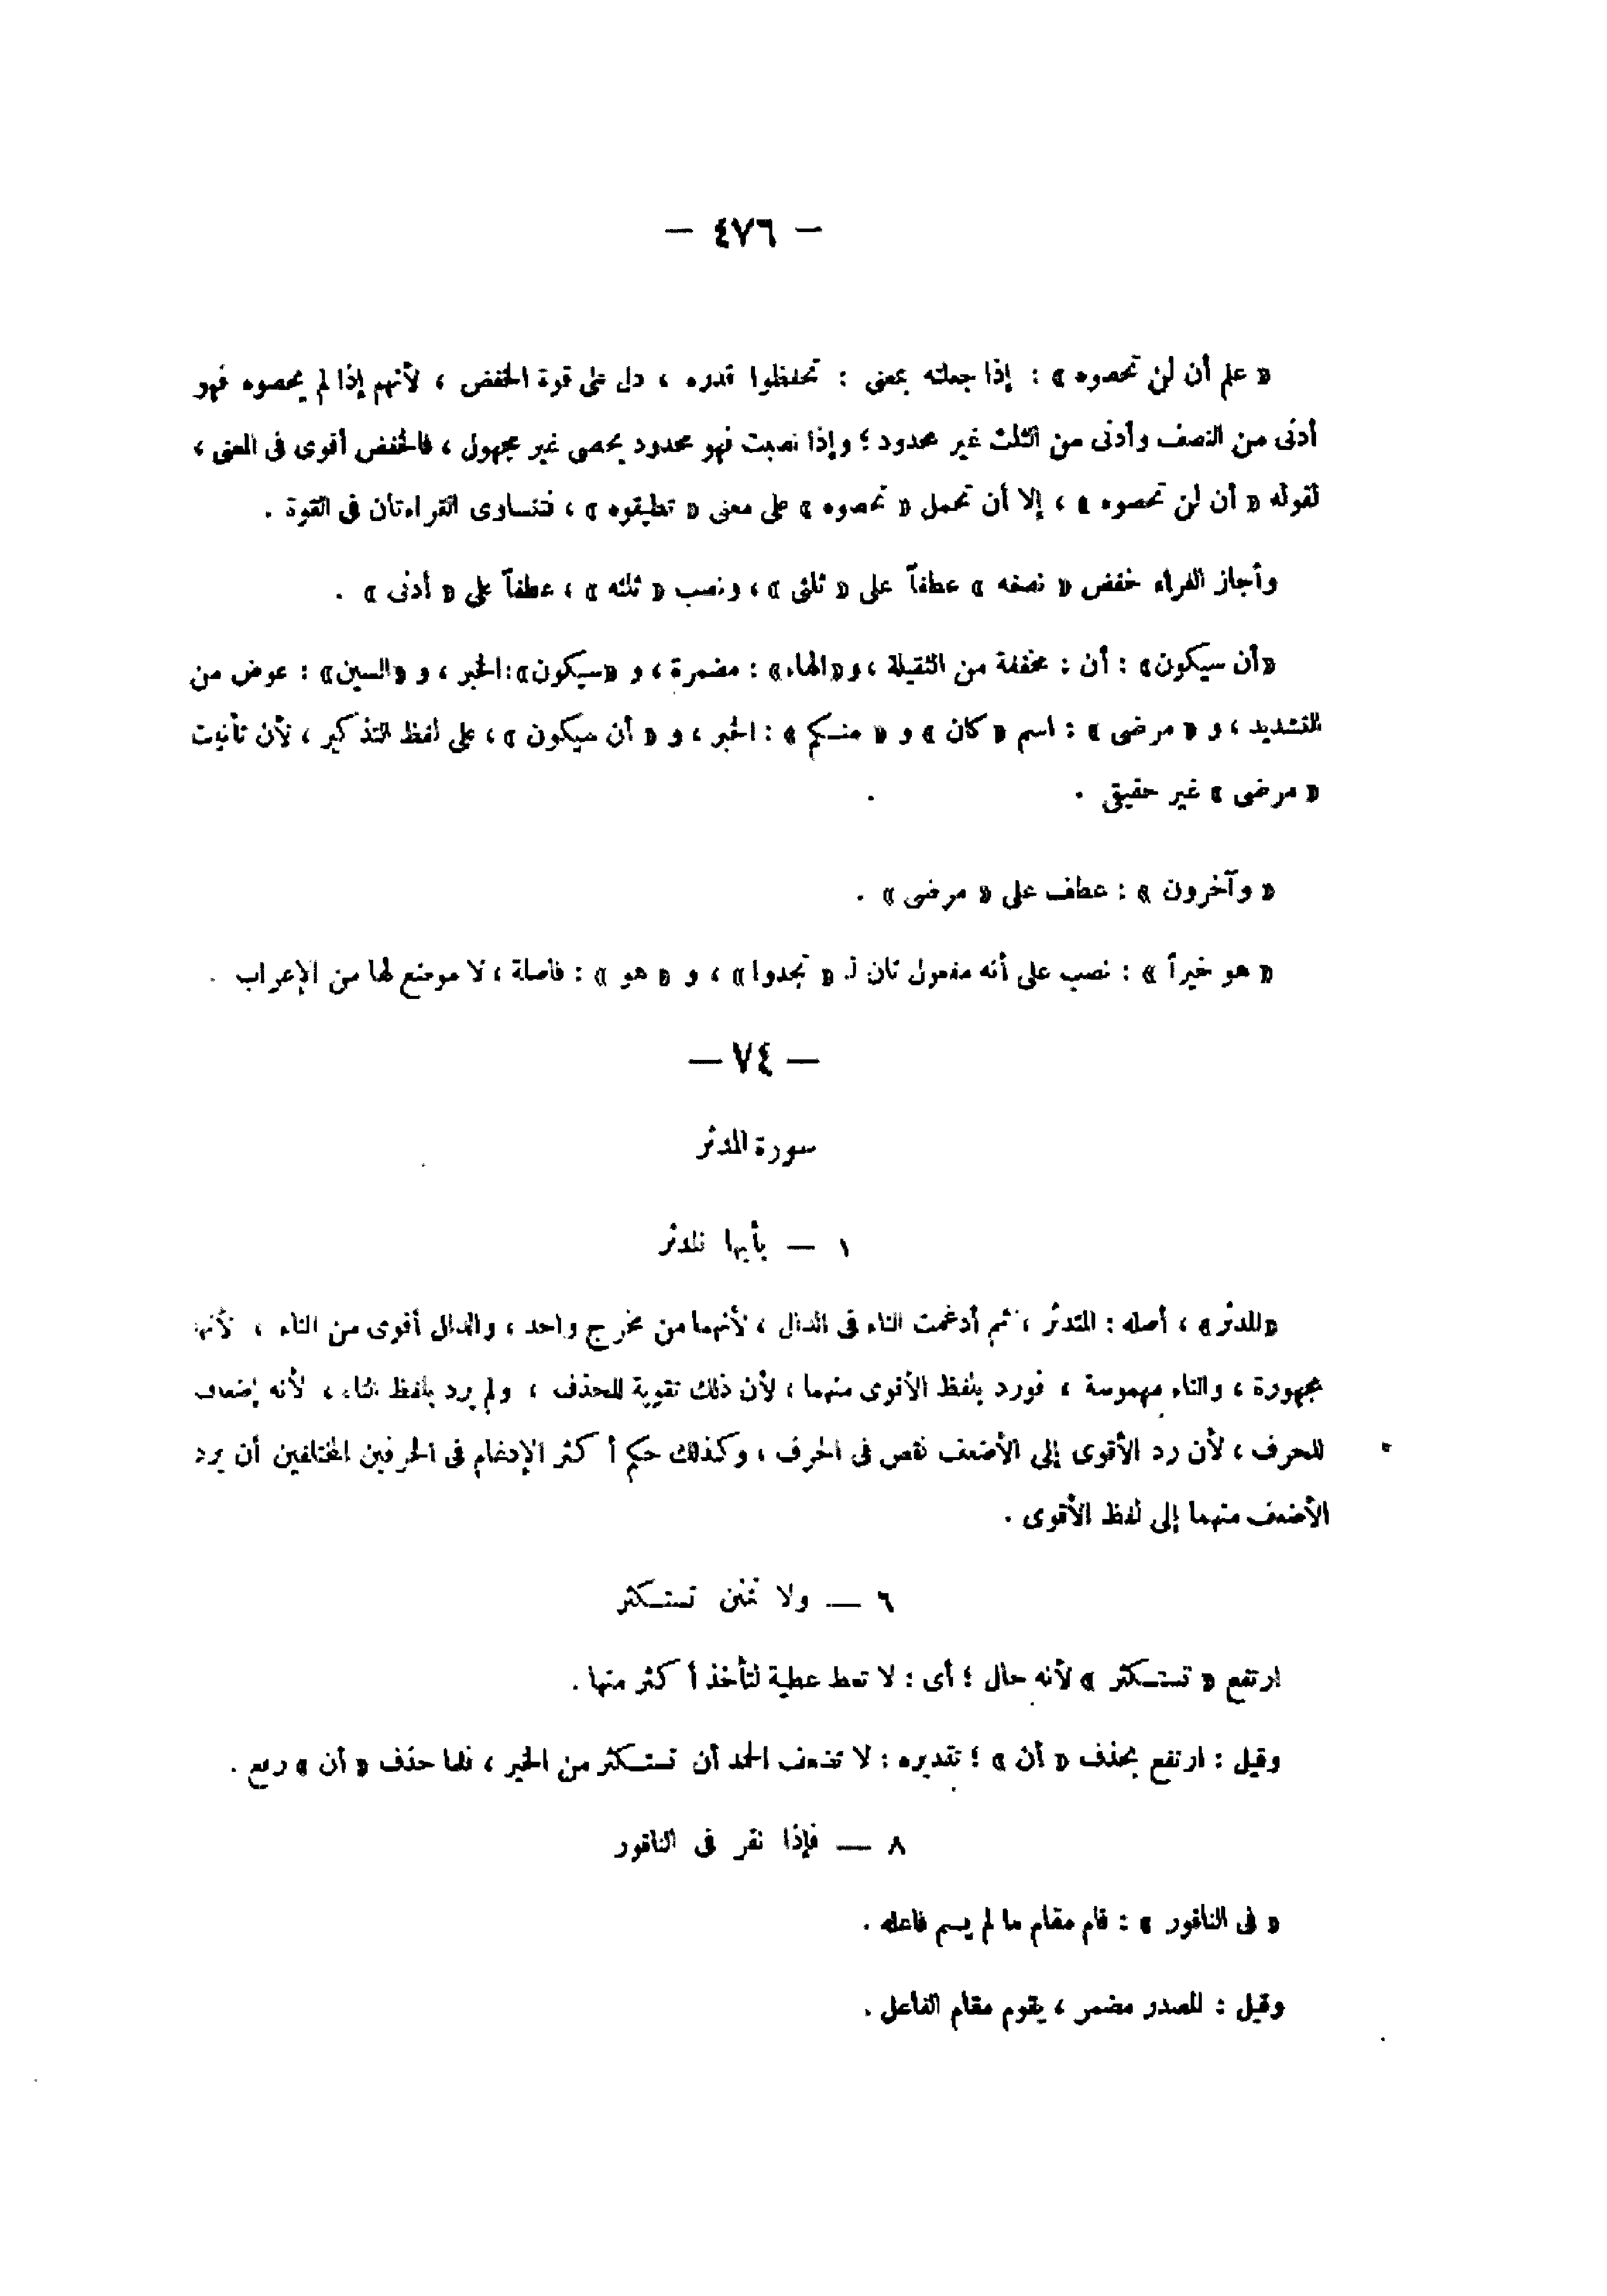 — ٤٧٦ —
« علم أن لن تحصوه » : إذا جعلته بمعنى : تحفظوا قدره ، دل على قوة الخفض ، لأنهم إذا لم يحصوه فهو
أدنى من النصف وأدنى من الثلث غير محدود ؛ وإذا نصبت فهو محدود يحصى غير مجهول ، فالخفض أقوى فى المعنى ،
لقوله « أن لن تحصوه » ، إلا أن تحمل « تحصوه » على معنى « تطيقوه » ، فتتساوى القراءتان فى القوة .
وأجاز الفراء خفض « نصفه » عطفاً على « ثلثى » ، ونصب « ثلثه » ، عطفاً على « أدنى » .
«أن سيكون» : أن : مخففة من الثقيلة ، و«الهاء» : مضمرة ، و «سيكون»:الخبر ، و «السين» : عوض من
التشديد ، و « مرضى » : اسم « كان » و « منكم » : الخبر ، و « أن سيكون » ، على لفظ التذكير ، لأن تأنيث
« مرضى » غير حقيق .
« وآخرون » : عطف على « مرضى » .
« هو خيراً » : نصب على أنه مفعول ثان لـ « تجدوا» ، و « هو » : فاصلة ، لا موضع لها من الإعراب .
— ٧٤ —
سورة المدثر
١ — يأيها المدثر
«المدثر» ، أصله : المتدثر ، ثم أدغمت التاء فى الدال ، لأنهما من مخرج واحد ، والدال أقوى من التاء ، لأنها
مجهورة ، والتاء مهموسة ، فورد بلفظ الأقوى منهما ، لأن ذلك تقوية للحذف ، ولم يرد بلفظ التاء ، لأنه إضعاف
للحرف ، لأن رد الأقوى إلى الأضعف نقص فى الحرف ، وكذلك حكم أكثر الإدغام فى الحرفين المختلفين أن يرد
الأضعف منهما إلى لفظ الأقوى .
٦ — ولا تمنن تستكثر
ارتفع « تستكثر » لأنه حال ؛ أى : لا تعط عطية لتأخذ أكثر منها .
وقيل : ارتفع بحذف « أن » ؛ تقديره : لا تضعف الحمد أن تستكثر من الخير ، فلما حذف « أن » رفع .
٨ — فإذا نقر فى الناقور
« فى الناقور » : قام مقام ما لم يسم فاعله .
وقيل : المصدر مضمر ، يقوم مقام الفاعل .